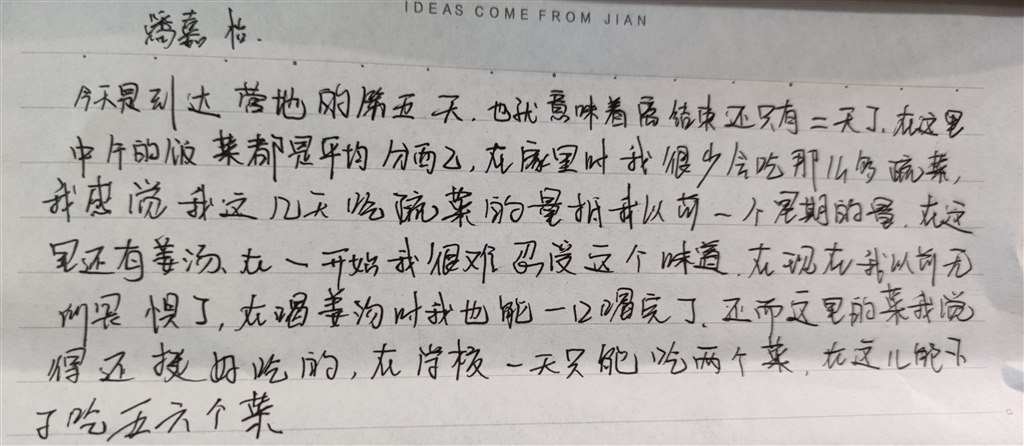 IDEAS COME FROM JIAN
潘嘉怡.
今天是到达营地的第五天.也就意味着离结束还只有二天了.在这里
中午的饭菜都是平均分配,在家里时我很少会吃那么多蔬菜,
我感觉我这几天吃蔬菜的量抵我以前一个星期的量.在这
里还有姜汤、在一开始我很难忍受这个味道.在现在我以前无
所畏惧了,在喝姜汤时我也能一口喝完了.还而这里的菜我觉
得还挺好吃的,在学校一天只能吃两个菜.在这儿能
吃五六个菜